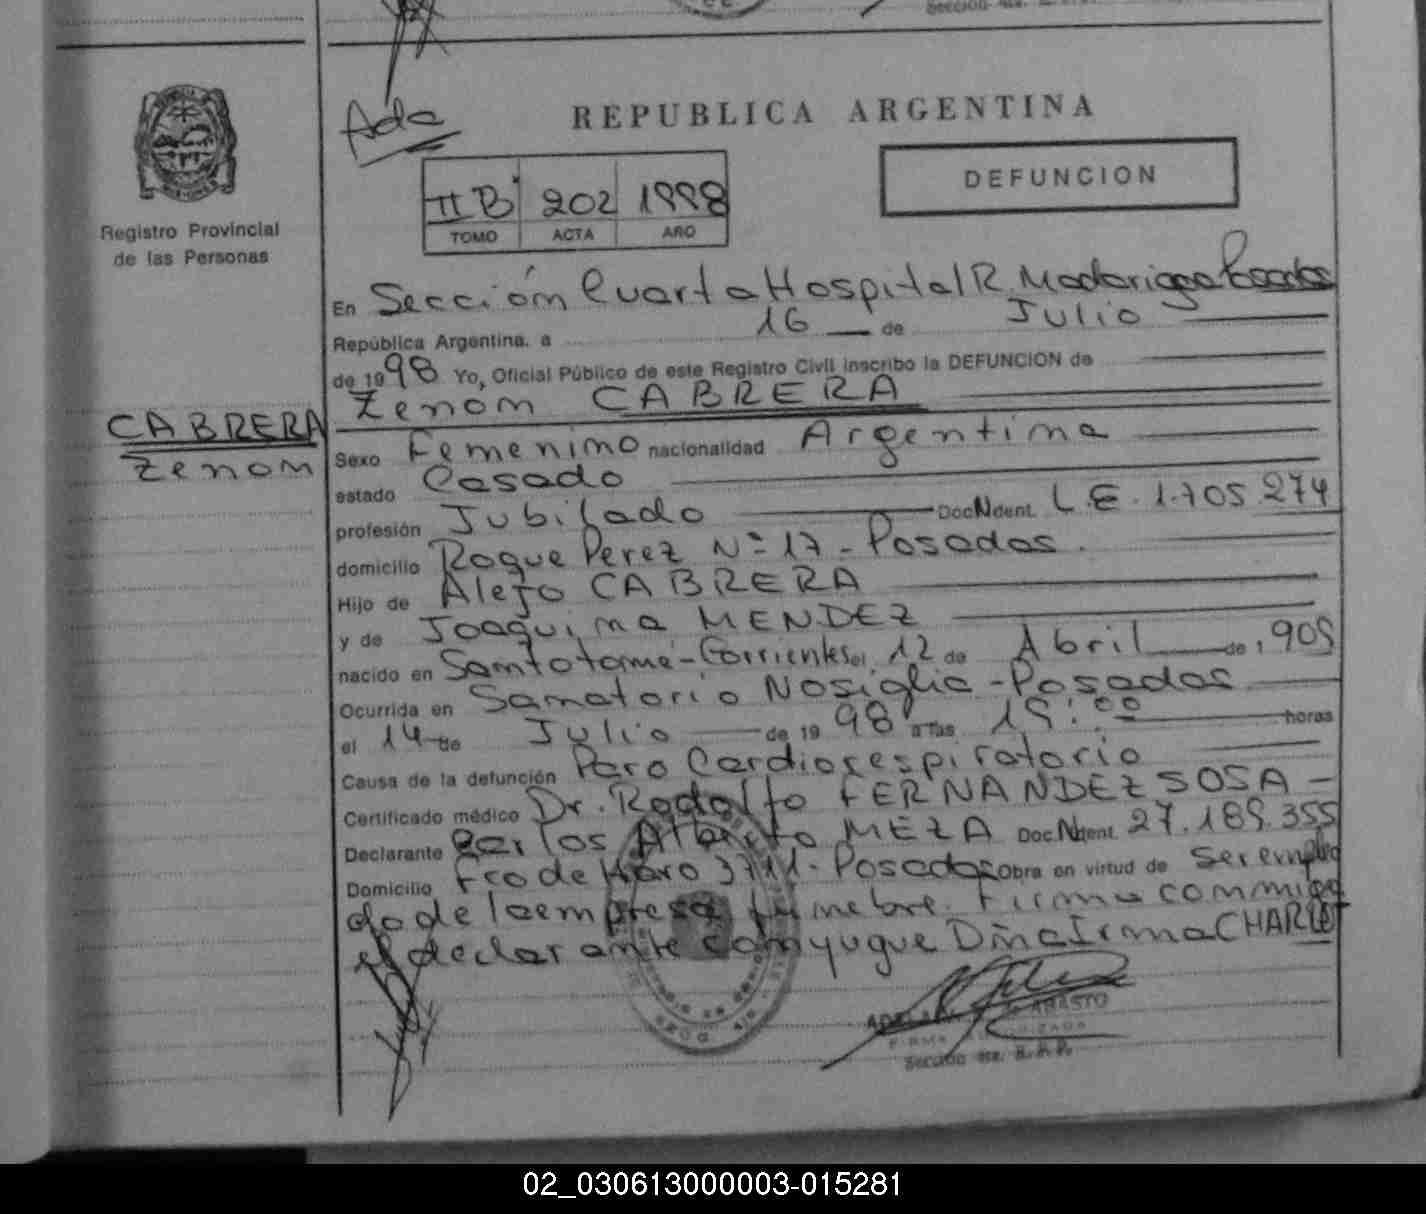 Sección 4ta.
Ada
REPUBLICA ARGENTINA
DEFUNCION
II B 202 1998
TOMO ACTA AÑO
Registro Provincial
de las Personas
En Sección Cuarta Hospital R. Madariaga Posadas
República Argentina. a 16 de Julio
de 1998 Yo, Oficial Público de este Registro Civil inscribo la DEFUNCION de
Zenon CABRERA
CABRERA
Zenon
Sexo Femenino nacionalidad Argentina
estado Casado
profesión Jubilado Doc. Ident. L.E. 1.705.274
domicilio Roque Perez Nº 17 - Posadas.
Hijo de Alejo CABRERA
y de Joaquina MENDEZ
nacido en Santotomé - Corrientes el 12 de Abril de 1905
Ocurrida en Sanatorio Nosiglia - Posadas
el 14 de Julio de 1998 a las 15:00 horas
Causa de la defunción Paro Cardiorespiratorio
Certificado médico Dr. Rodolfo FERNANDEZ SOSA -
Declarante Carlos Alberto MEZA Doc. Ident. 27.189.355
Domicilio Fco de Haro 3711 - Posadas Obra en virtud de ser emplea
do de la empresa funebre. Firma conmigo
el declarante conyugue Dña Irma CHARLET
FIRMA AUTORIZADA
Sección 4ta. R.P.P.
02_030613000003-015281